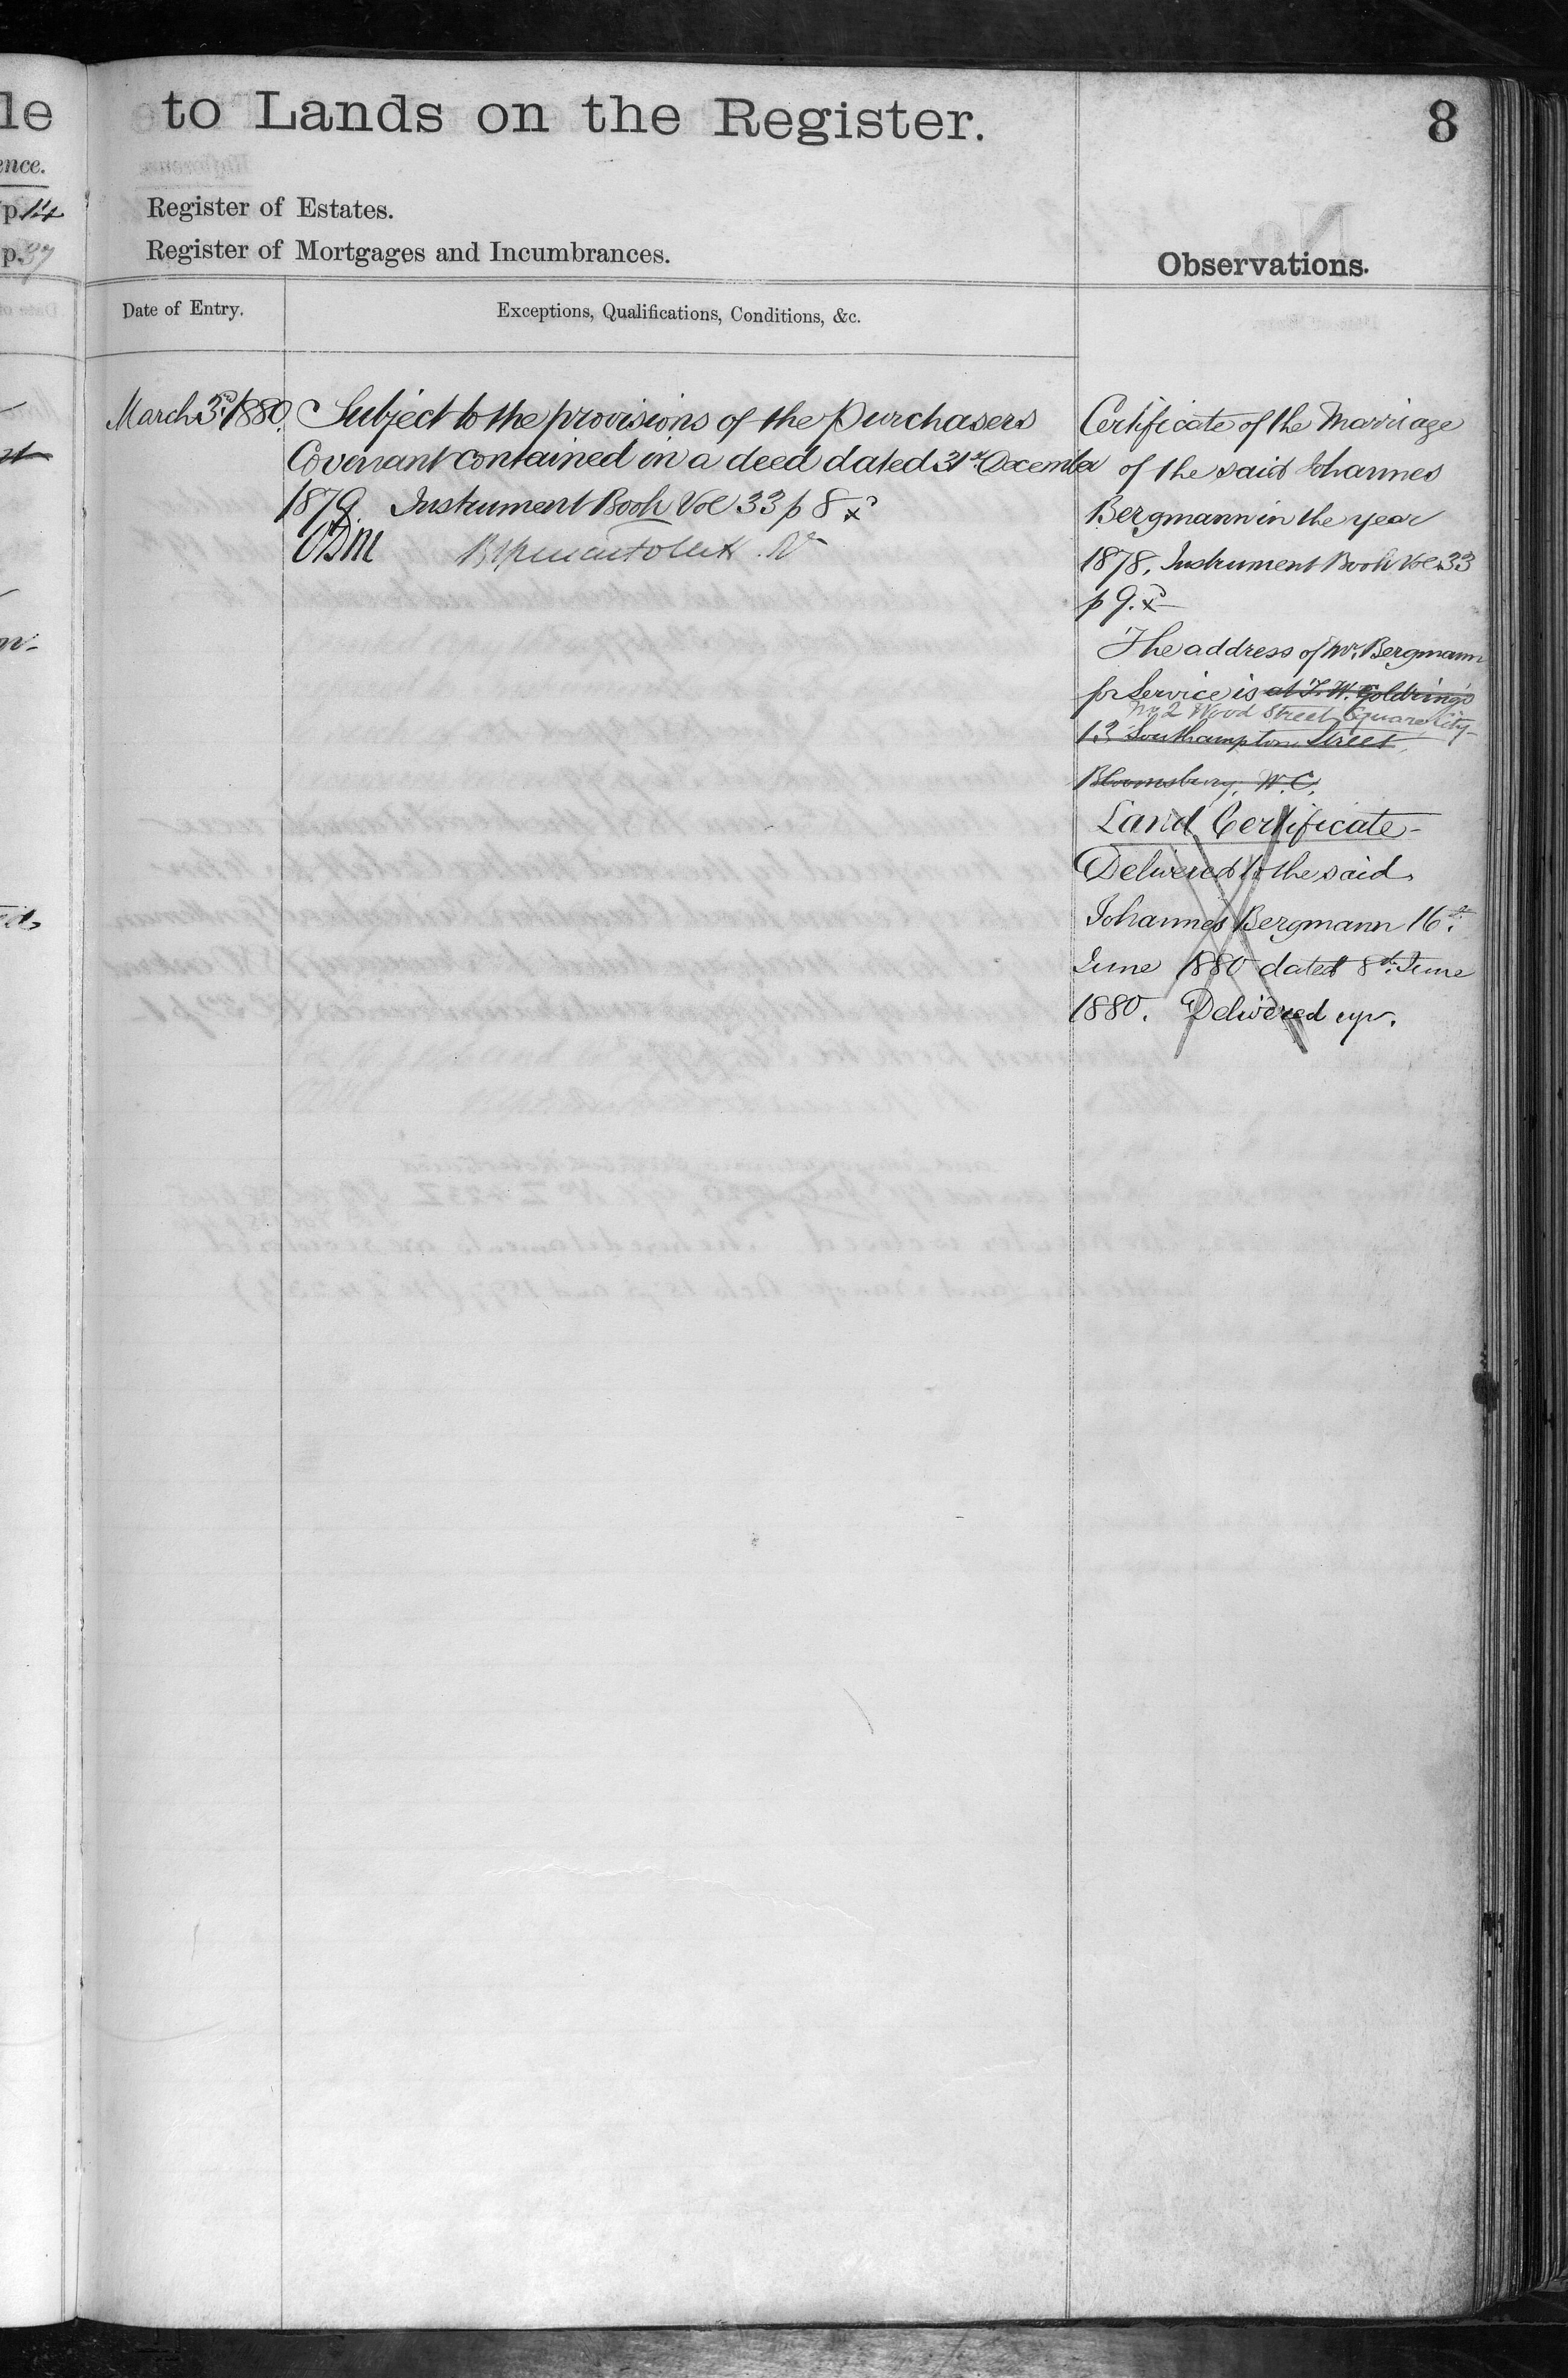 le
ence.
p.14
p.37
to Lands on the Register.
8
Register of Estates.
Register of Mortgages and Incumbrances.
Observations.
Date of Entry.
Exceptions, Qualifications, Conditions, &c.
March 3rd 1880.
Subject to the provisions of the Purchasers
Covenant contained in a deed dated 31st December
1879. Instrument Book Vol 33 p 8
Certificate of the Marriage
of the said Johannes
Bergmann in the year
1878. Instrument Book Vol. 33
p 9.
The address of Mr. Bergmann
for Service is at J. W. Goldring's
No 2 Wood Street Square City
13 Southampton Street,
Bloomsbury, W.C.
Land Certificate
Delivered to the said
Johannes Bergmann 16th
June 1880 dated 8th June
1880. Delivered up.